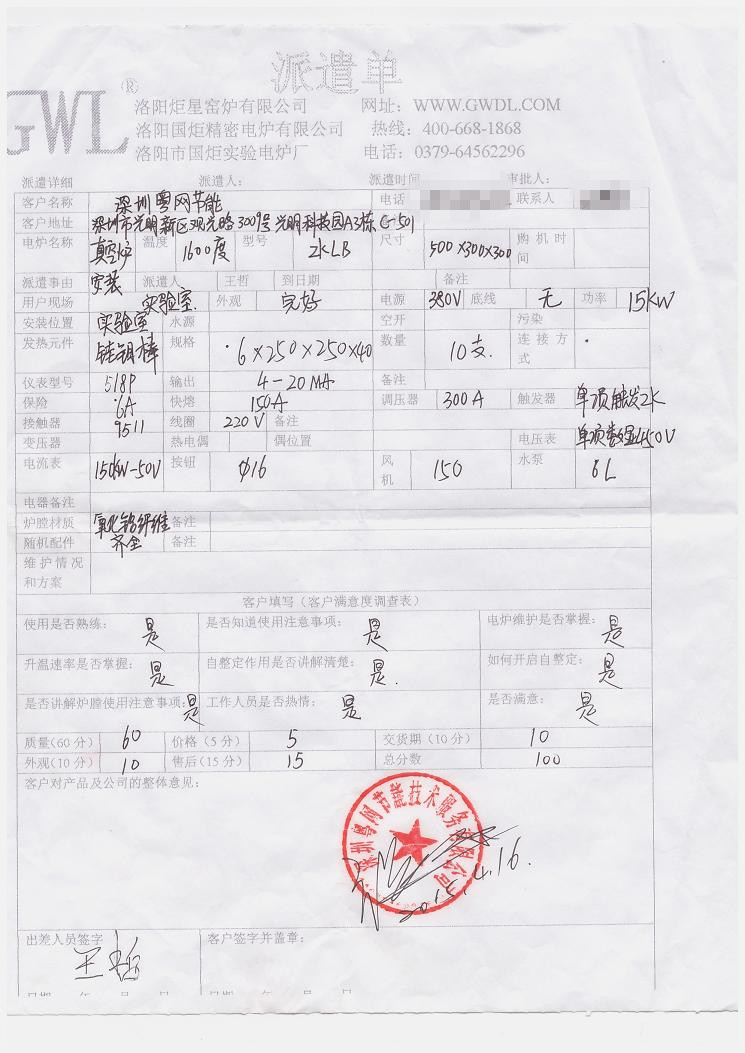 派遣单
GWL®
洛阳炬星窑炉有限公司 网址：WWW.GWDL.COM
洛阳国炬精密电炉有限公司 热线：400-668-1868
洛阳市国炬实验电炉厂 电话：0379-64562296
派遣详细 派遣人： 派遣时间 审批人：
客户名称 深圳粤网节能 电话 联系人
客户地址 深圳市光明新区观光路3009号光明科技园A3栋C-501
电炉名称 真空炉 温度 1600度 型号 2KLB 尺寸 500×300×300 购机时间
派遣事由 安装 派遣人 王哲 到日期 备注
用户现场 实验室. 外观 完好 电源 380V 底线 无 功率 15KW
安装位置 实验室 水源 空开 污染
发热元件 硅钼棒 规格 6×250×250×40 数量 10支. 连接方式
仪表型号 518P 输出 4-20MA 备注
保险 6A 快熔 150A 调压器 300A 触发器 单项触发2K
接触器 9511 线圈 220V 备注
变压器 热电偶 偶位置 电压表 单项数显450V
电流表 150KW-50V 按钮 Φ16 风机 150 水泵 6L
电器备注
炉膛材质 氧化铝纤维 备注
随机配件 齐全 备注
维护情况和方案
客户填写（客户满意度调查表）
使用是否熟练： 是 是否知道使用注意事项： 是 电炉维护是否掌握： 是
升温速率是否掌握： 是 自整定作用是否讲解清楚： 是. 如何开启自整定： 是
是否讲解炉膛使用注意事项： 是 工作人员是否热情： 是 是否满意： 是
质量（60分） 60 价格（5分） 5 交货期（10分） 10
外观（10分） 10 售后（15分） 15 总分数 100
客户对产品及公司的整体意见：
深圳粤网节能技术服务有限公司
2015.4.16.
出差人员签字 客户签字并盖章：
王哲